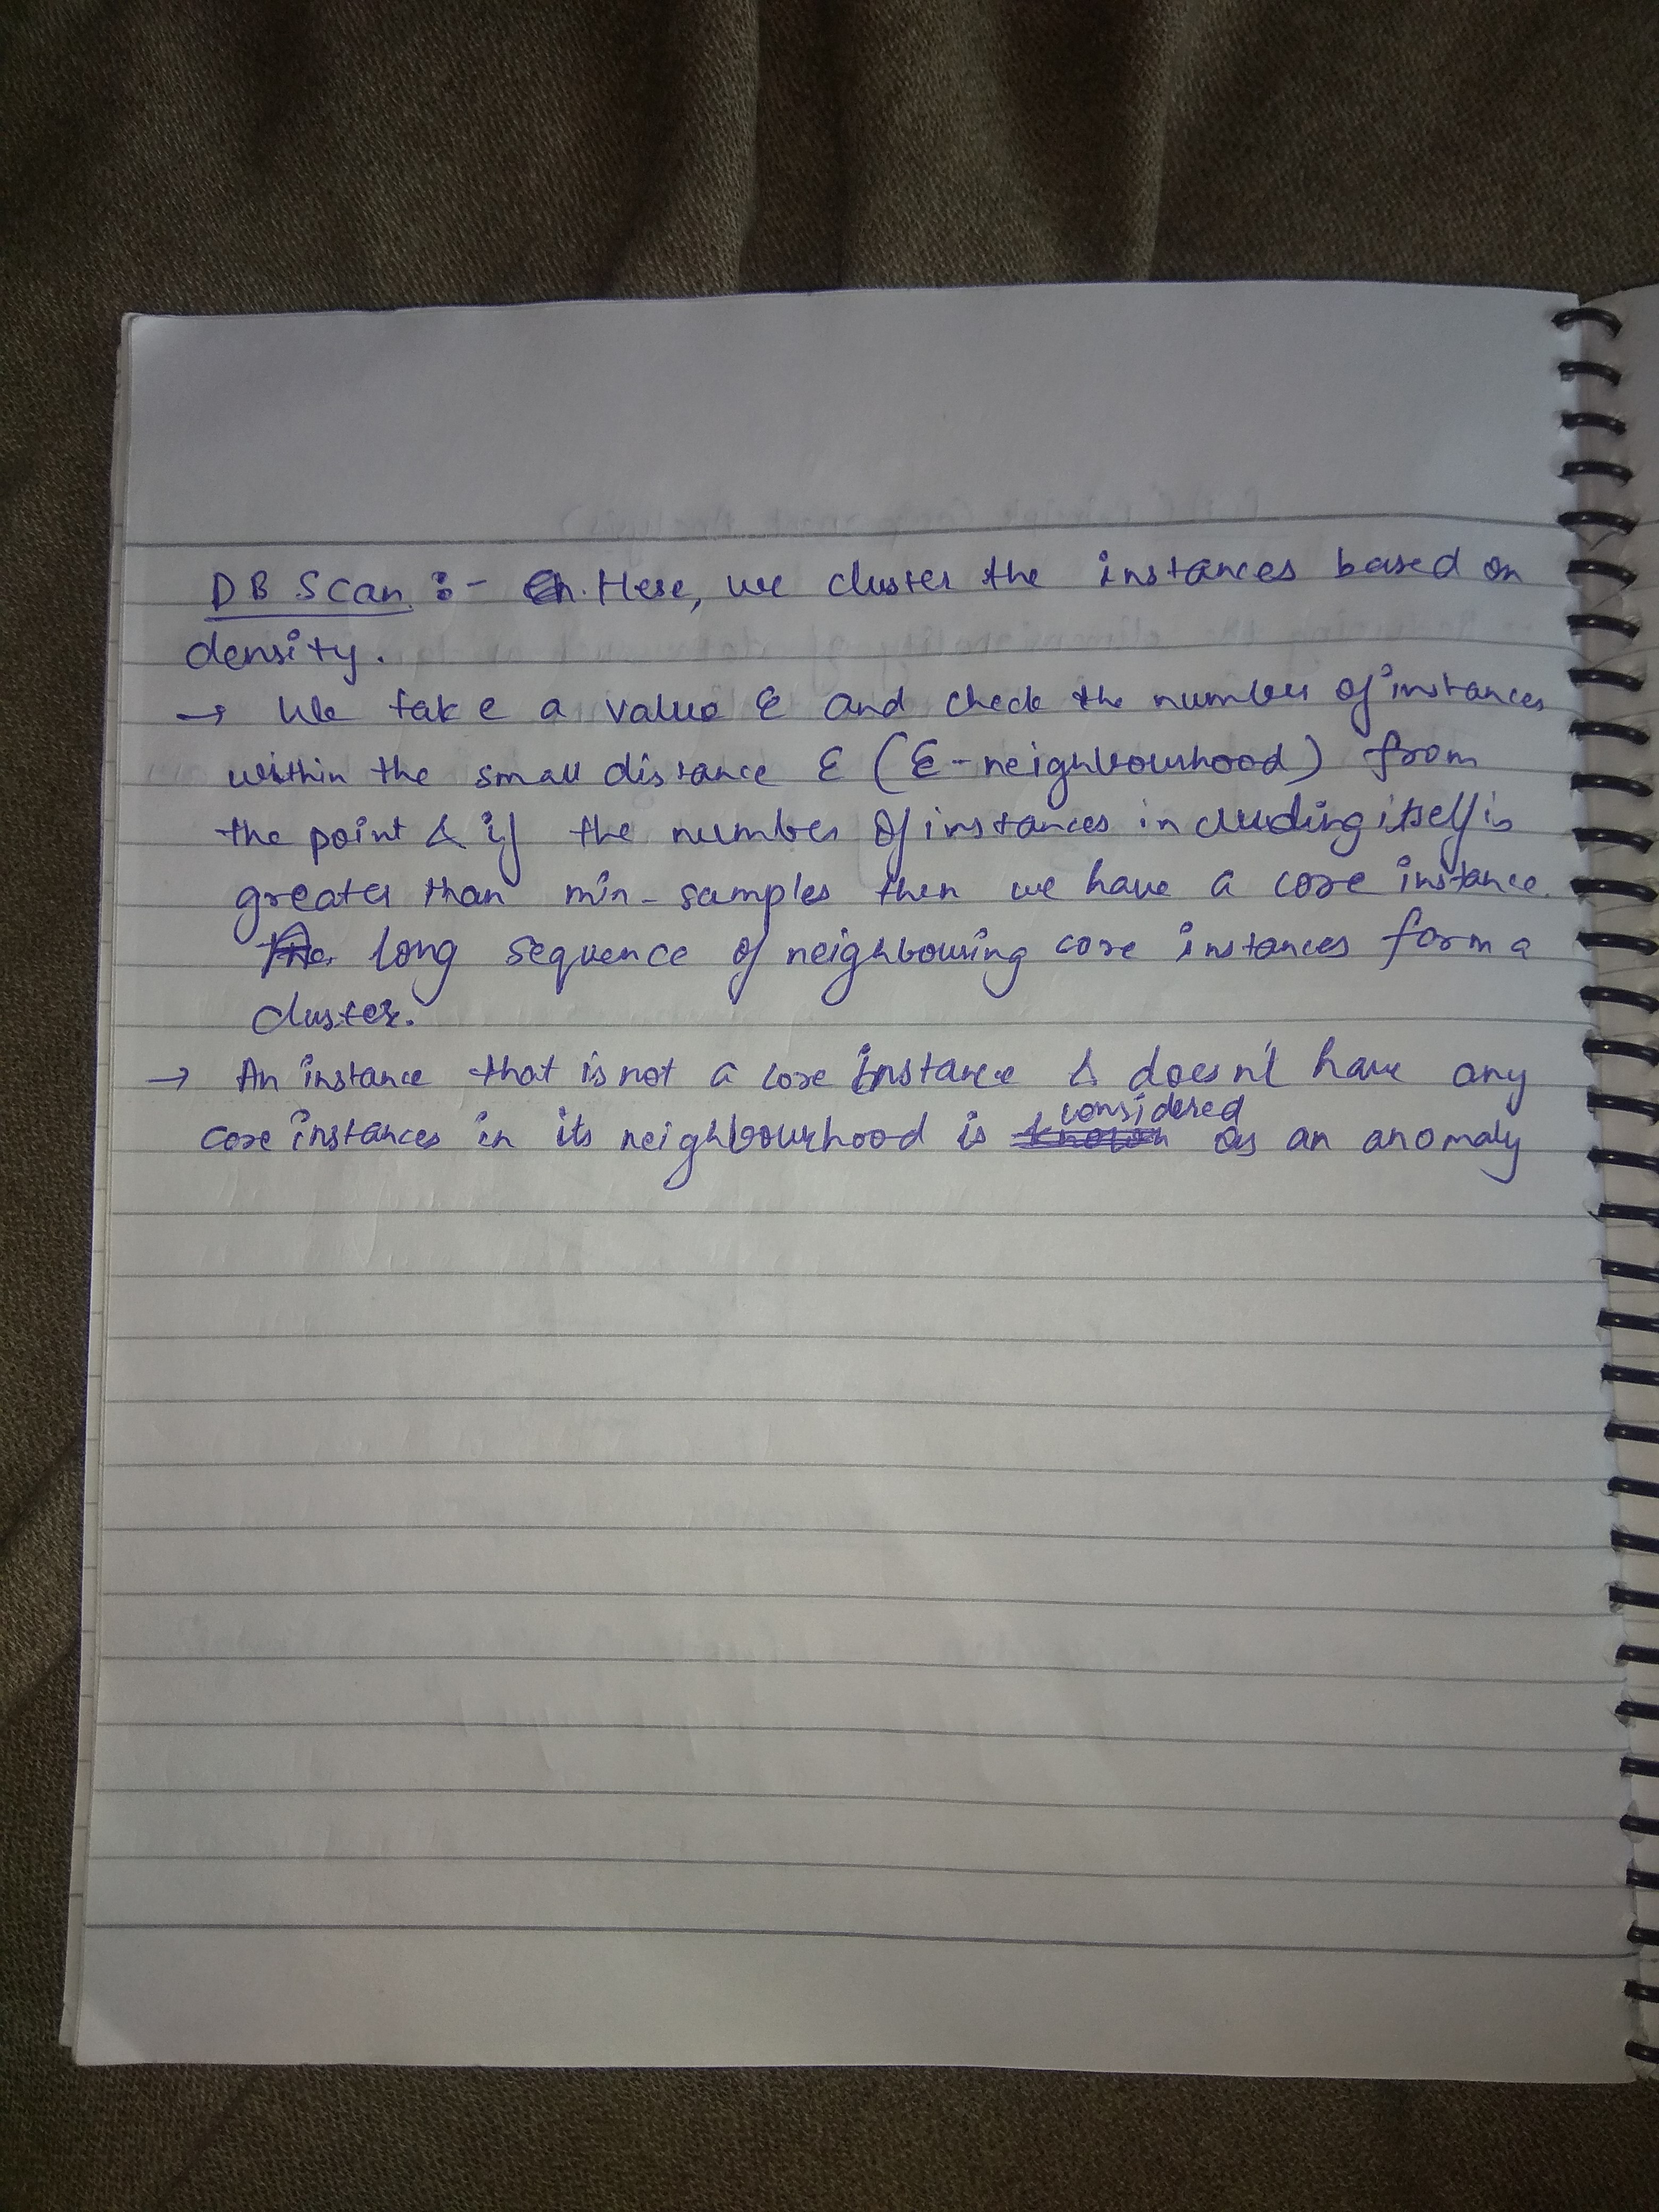 DB Scan :- Here, we cluster the instances based on
density.
→ We take a value ε and check the number of instances
within the small distance ε (ε-neighbourhood) from
the point & if the number of instances including itself is
greater than min_samples then we have a core instance.
long sequence of neighbouring core instances form a
cluster.
→ An instance that is not a core instance & doesn't have any
considered
core instances in its neighbourhood is known as an anomaly